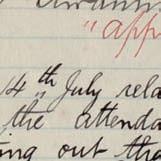 "app
14th July rela
the attenda
ing out the